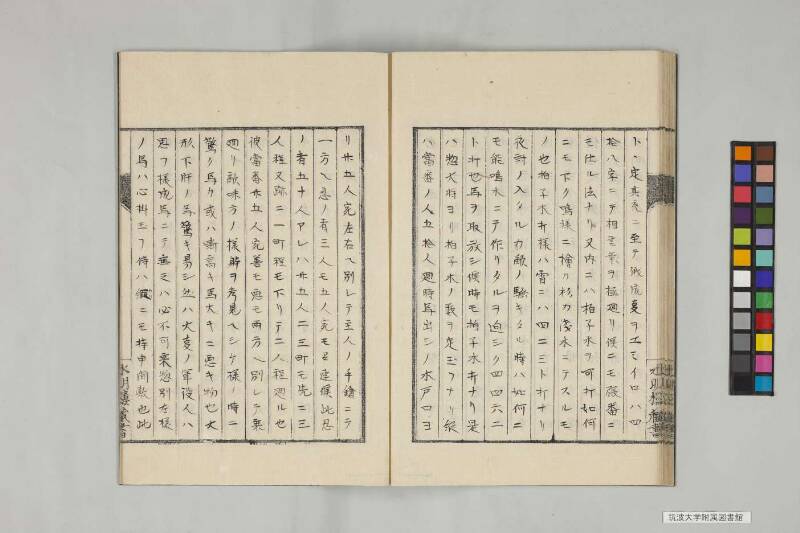 ト、定真先ニ至テ武流夏ヲユミイロハ四
拾八字ニテ相言葉ヲ極廻リ候ニモ篏番ニ
モ仕ル法ナリ又内ニハ拍子木ヲ可打如何
ニモ下ク鳴様ニ檜カ杉カ浅木ニテスルモ
ノ也拍子木打様ハ雪ニハ四ニ三ト打ナリ
夜討ノ入タルカ敵ノ騒キタル時ハ如何ニ
モ能鳴木ニテ作リタルヲ迫シク四四六二
ト打也馬ヲ取放シ候時モ拍子木打ナリ是
ハ惣大将ヨリ拍子木ノ数ヲ定玉フナリ縦
ハ當番ノ人五拾人廻時馬出シノ木戸口ヨ
リ廿五人宛左右ヘ別レテ主人ノ手鑓ニテ
一方ヘ忍ノ者三人モ五人宛モ召連候此忍
ノ者五十人アレハ廿五人二三町モ先ニ三
人程又跡ニ一町程モ下リテ二人程廻ル也
彼當番廿五人宛善モ悪モ両方ヘ別レテ乗
廻リ敵味方ノ様躰ヲ考見ヘシケ様ノ時ニ
驚ク馬カ或ハ嘶高キ馬大キニ悪キ物也大
形下肝ノ馬驚キ易シ然ハ大夏ノ軍役人ハ
思フ様成馬ニテ無クハ必不可乗惣別左様
ノ馬ハ心掛玉フ侍ハ縦ニモ持申間敷也此
水月樓藏書
筑波大学附属図書館